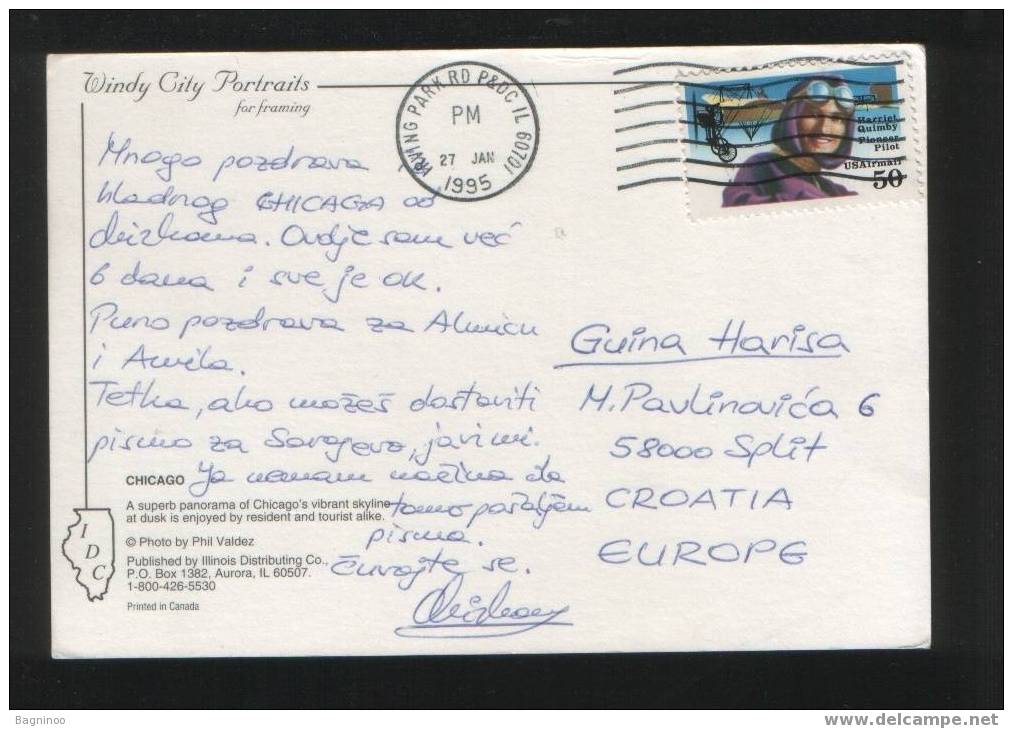 Windy City Portraits
for framing
IRVING PARK RD P&DC IL 60701
PM
27 JAN
1995
Harriet
Quimby
Pioneer
Pilot
USAirmail
50
Mnogo pozdrava
hladnog CHICAGA od
Ovdje sam već
6 dana i sve je ok.
Puno pozdrava za Almicu
i
Tetka, ako možeš dostaviti
pismo za Sarajevo, javi mi.
Ja nemam načina da
tamo pošaljem
pisma.
Čuvajte se.
Guina Harisa
M. Pavlinovića 6
58000 Split
CROATIA
EUROPE
CHICAGO
A superb panorama of Chicago's vibrant skyline
at dusk is enjoyed by resident and tourist alike.
© Photo by Phil Valdez
Published by Illinois Distributing Co.,
P.O. Box 1382, Aurora, IL 60507.
1-800-426-5530
Printed in Canada
IDC
Bagninoo
www.delcampe.net